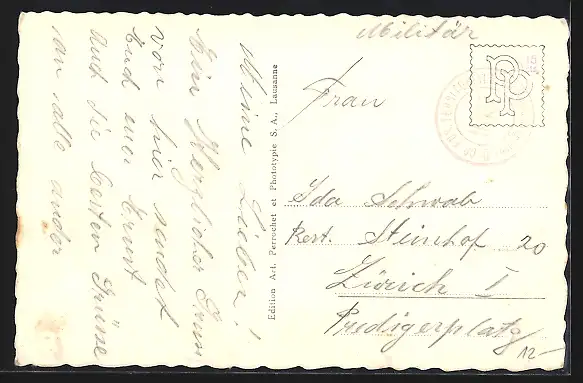 Meine Lieben!
Ein Herzlicher Gruss
von hier sendet
Euch euer Ernst
auch die besten Grüsse
an alle ander
Edition Art. Perrochet et Phototypie S. A., Lausanne
Militär
PP
Frau
Ida Schwab
Rest. Steinhof 20
Zürich I
Predigerplatz
12-